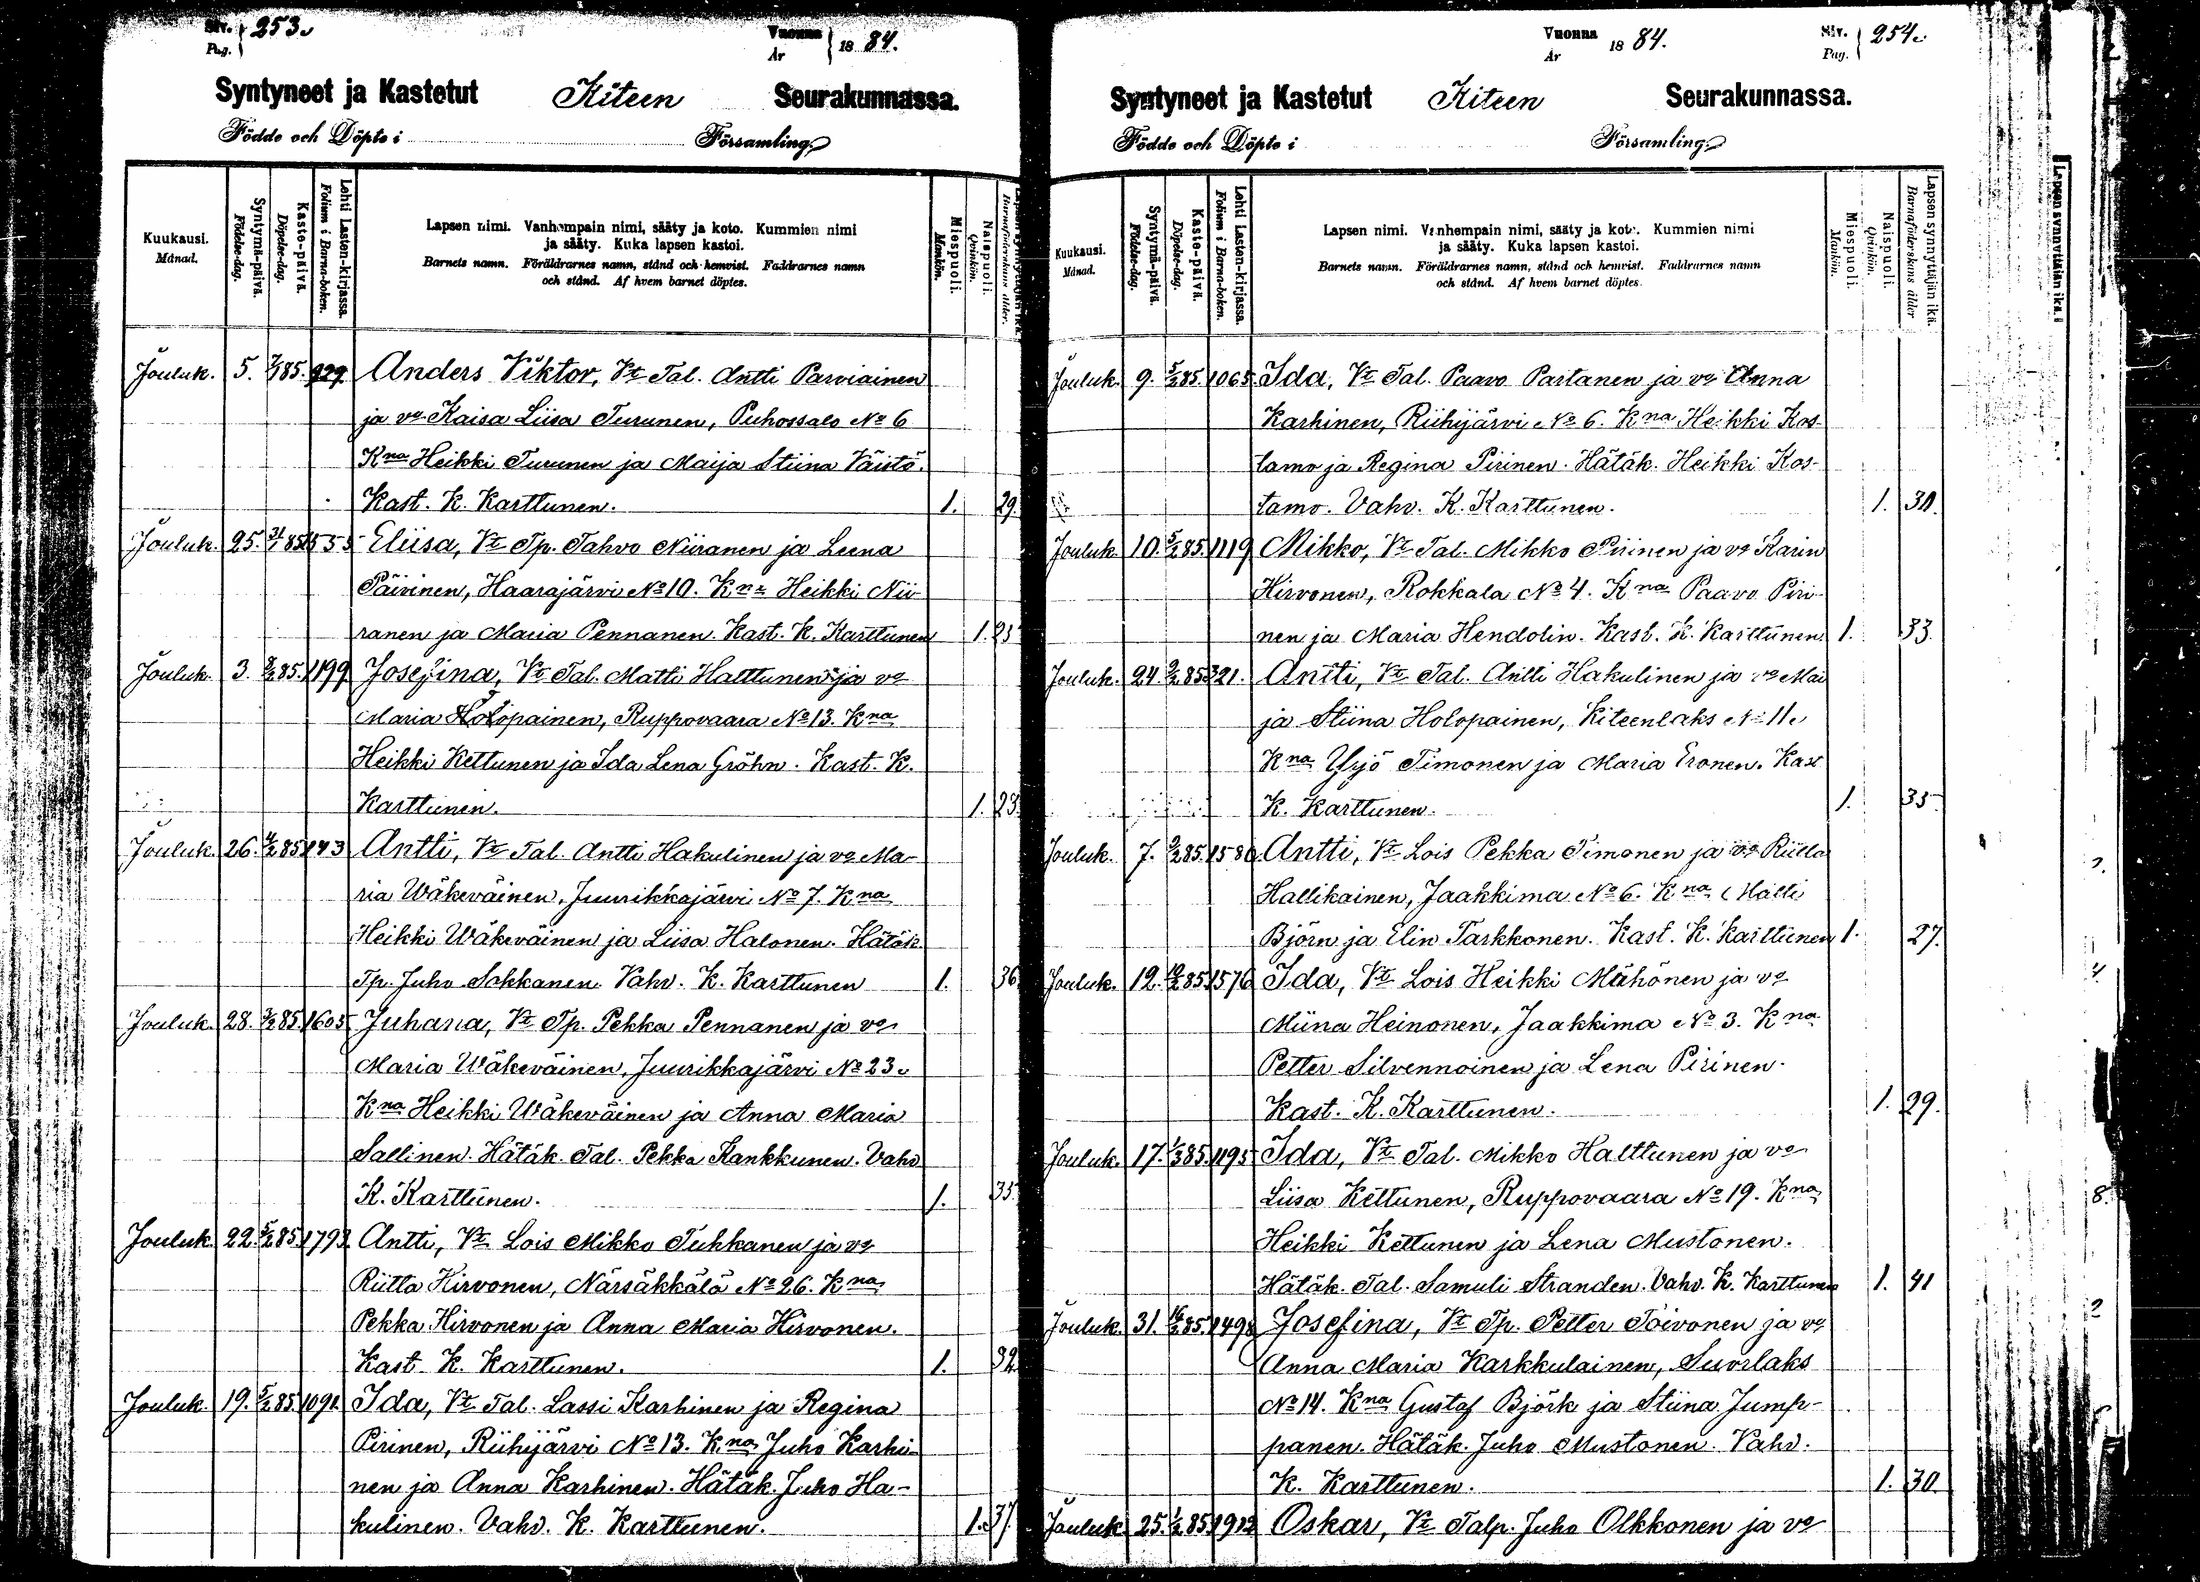 Siv. Pag. 253.
Vuonna År 1884.
Syntyneet ja Kastetut Kiteen Seurakunnassa.
Födde och Döpte i Församling.
Kuukausi. Månad.
Syntymä-päivä. Födelse-dag.
Kaste-päivä. Döpelse-dag.
Lehti Lasten-kirjassa. Folium i Barna-boken.
Lapsen nimi. Vanhempain nimi, sääty ja koto. Kummien nimi
ja sääty. Kuka lapsen kastoi.
Barnets namn. Föräldrarnes namn, stånd och hemvist. Faddrarnes namn
och stånd. Af hvem barnet döptes.
Miespuoli. Mankön.
Naispuoli. Qvinkön.
Jouluk. 5. 85. 929 Anders Viktor, Vt Tal. Antti Parviainen
ja vo Kaisa Liisa Turunen, Puhossalo No 6
Kna Heikki Turunen ja Maija Stiina Väistö.
Kast. K. Karttunen. 1. 29.
Jouluk. 25. 31/1 85. Eliisa, Vt Tp. Tahvo Niiranen ja Leena
Päivinen, Haarajärvi No 10. Kna Heikki Nii-
ranen ja Maria Pennanen. Kast. K. Karttunen 1. 23
Jouluk. 3. 85. 1199 Josefina, Vt Tal. Matti Halttunen ja vo
Maria Holopainen, Ruppovaara No 13. Kna
Heikki Kettunen ja Ida Lena Gröhn. Kast. K.
Karttunen. 1. 23
Jouluk. 26. 4/2 85. Antti, Vt Tal. Antti Hakulinen ja vo Ma-
ria Wäkeväinen, Juurikkajärvi No 7. Kna
Heikki Wäkeväinen ja Liisa Halonen. Hätäk.
Tp. Juho Sokkanen. Vahv. K. Karttunen 1. 36
Jouluk. 28. 85. 1605 Juhana, Vt Tp. Pekka Pennanen ja vo
Maria Wäkeväinen, Juurikkajärvi No 23.
Kna Heikki Wäkeväinen ja Anna Maria
Sallinen. Hätäk. Tal. Pekka Kankkunen. Vahv
K. Karttunen. 1. 35
Jouluk. 22. 5/2 85. 1793 Antti, Vt Lois Mikko Tuhkanen ja vo
Riitta Hirvonen, Närsäkkälä No 26. Kna
Pekka Hirvonen ja Anna Maria Hirvonen.
Kast K. Karttunen. 1. 32
Jouluk. 19. 5/2 85. 1091 Ida, Vt Tal. Lassi Karhinen ja Regina
Pirinen, Riihijärvi No 13. Kna Juho Karhi-
nen ja Anna Karhinen. Hätäk. Juho Ha-
kulinen. Vahv. K. Karttunen. 1. 37.
Vuonna År 1884.
Siv. Pag. 254.
Syntyneet ja Kastetut Kiteen Seurakunnassa.
Födde och Döpte i Församling.
Kuukausi. Månad.
Syntymä-päivä. Födelse-dag.
Kaste-päivä. Döpelse-dag.
Lehti Lasten-kirjassa. Folium i Barna-boken.
Lapsen nimi. Vanhempain nimi, sääty ja koto. Kummien nimi
ja sääty. Kuka lapsen kastoi.
Barnets namn. Föräldrarnes namn, stånd och hemvist. Faddrarnes namn
och stånd. Af hvem barnet döptes.
Miespuoli. Mankön.
Naispuoli. Qvinkön.
Lapsen synnyttäjän ikä. Barnaföderskans ålder
Jouluk. 9. 5/2 85. 1065 Ida, Vt Tal. Paavo Partanen ja vo Anna
Karhinen, Riihijärvi No 6. Kna Heikki Kos-
tamo ja Regina Pirinen. Hätäk. Heikki Kos-
tamo. Vahv. K. Karttunen. 1. 30.
Jouluk 10. 5/2 85. 1119 Mikko, Vt Tal. Mikko Piirinen ja vo Karin
Hirvonen, Rokkala No 4. Kna Paavo Piri-
nen ja Maria Hendolin. Kast. K. Karttunen 1. 33
Jouluk. 24. 9/2 85. 321. Antti, Vt Tal. Antti Hakulinen ja vo Mai
ja Stiina Holopainen, Kiteenlaks No 11.
Kna Yrjö Timonen ja Maria Eronen. Kast
K. Karttunen. 1. 35
Jouluk. 7. 9/2 85. 1586 Antti, Vt Lois Pekka Timonen ja vo Riitta
Hallikainen, Jaakkima No 6. Kna Matti
Björn ja Elin Tarkkonen. Kast. K. Karttunen 1. 27.
Jouluk. 12. 85. 1576 Ida, Vt Lois Heikki Mähönen ja vo
Miina Heinonen, Jaakkima No 3. Kna
Petter Silvennoinen ja Lena Pirinen.
Kast. K. Karttunen. 1. 29.
Jouluk. 17. 1/3 85. 1195 Ida, Vt Tal. Mikko Halttunen ja vo
Liisa Kettunen, Ruppovaara No 19. Kna
Heikki Kettunen ja Lena Mustonen.
Hätäk. Tal. Samuli Stranden. Vahv. K. Karttunen 1. 41
Jouluk. 31. 85. 1498 Josefina, Vt Tp. Petter Toivonen ja vo
Anna Maria Karkkulainen, Suorlaks
No 14. Kna Gustaf Björk ja Stiina Jump-
panen. Hätäk. Juho Mustonen. Vahv.
K. Karttunen. 1. 30.
Jouluk 25. 85. Oskar, Vt Talp. Juho Olkkonen ja vo